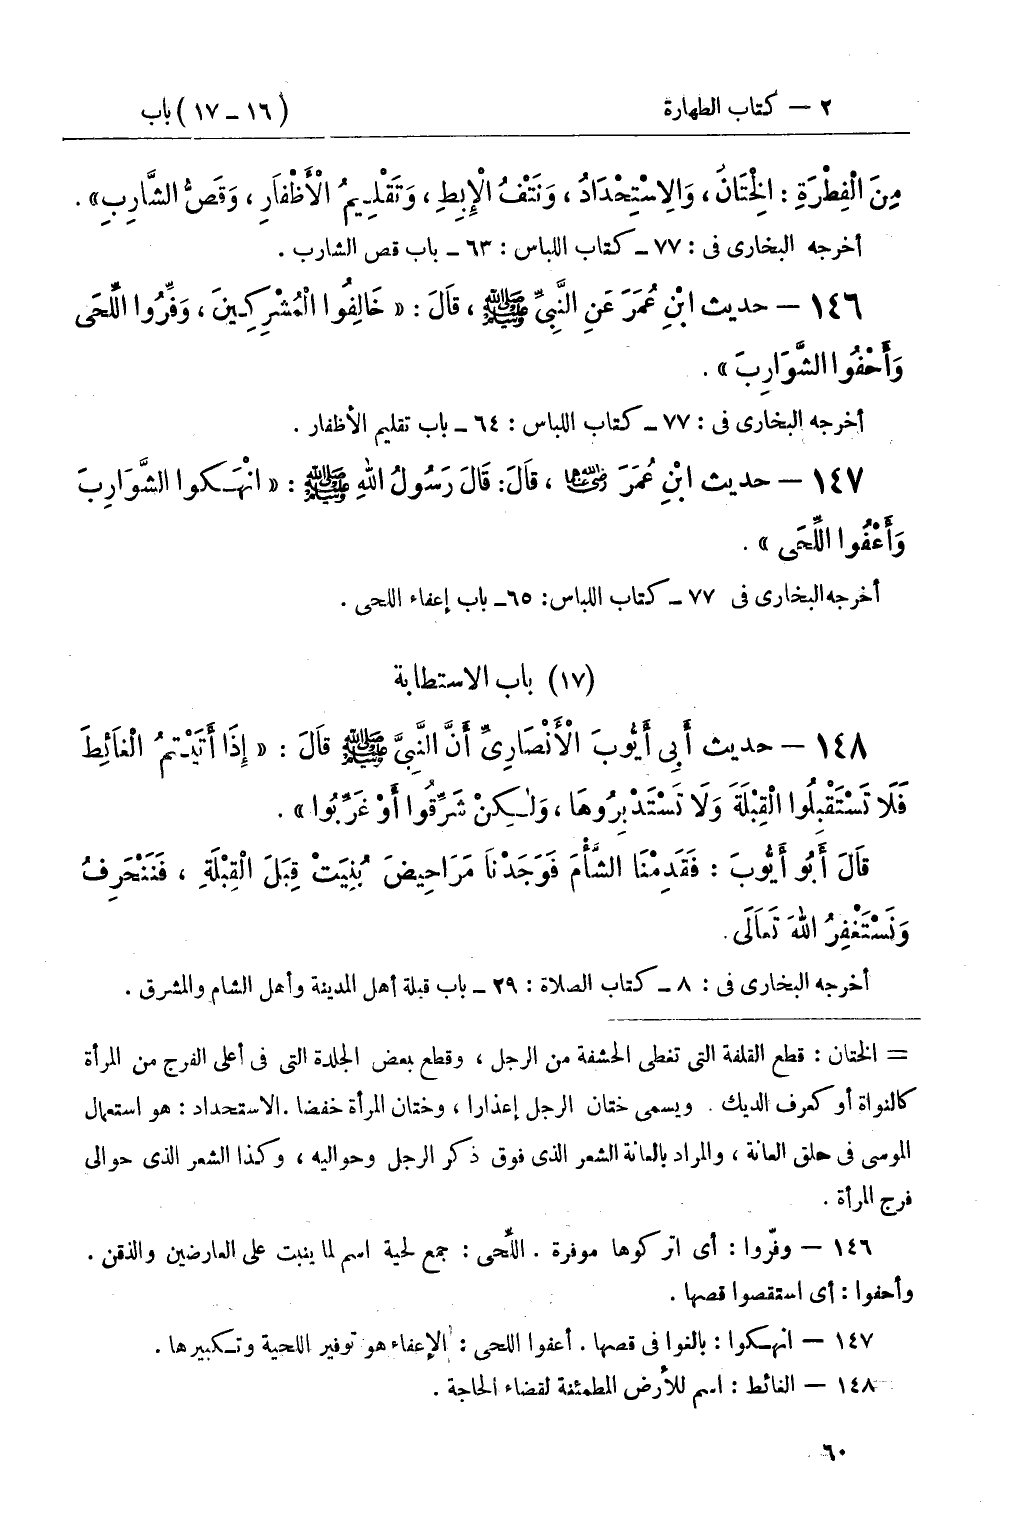 ٢ — كتاب الطهارة (١٦ – ١٧) باب
مِنَ الْفِطْرَةِ : الْخِتَانُ ، وَالِاسْتِحْدَادُ ، وَنَتْفُ الْإِبِطِ ، وَتَقْلِيمُ الْأَظْفَارِ ، وَقَصُّ الشَّارِبِ» .
أخرجه البخارى فى : ٧٧ ـ كتاب اللباس : ٦٣ ـ باب قص الشارب .
١٤٦ — حديث ابْنِ عُمَرَ عَنِ النَّبِىِّ ﷺ ، قَالَ : « خَالِفُوا الْمُشْرِكِينَ ، وَفِّرُوا اللِّحَى
وَأَحْفُوا الشَّوَارِبَ » .
أخرجه البخارى فى : ٧٧ ـ كتاب اللباس : ٦٤ ـ باب تقليم الأظفار .
١٤٧ — حديث ابْنِ عُمَرَ رضي الله عنهما ، قَالَ : قَالَ رَسُولُ اللهِ ﷺ : « انْهَكوا الشَّوَارِبَ
وَأَعْفُوا اللِّحَى » .
أخرجه البخارى فى ٧٧ ـ كتاب اللباس : ٦٥ ـ باب إعفاء اللحى .
(١٧) باب الاستطابة
١٤٨ — حديث أَبِى أَيُّوبَ الْأَنْصَارِىِّ أَنَّ النَّبِىَّ ﷺ قَالَ : « إِذَا أَتَيْتمُ الْغَائِطَ
فَلَا تَسْتَقْبِلُوا الْقِبْلَةَ وَلَا تَسْتَدْبِرُوهَا ، وَلٰكِنْ شَرِّقُوا أَوْ غَرِّبُوا » .
قَالَ أَبُو أَيُّوبَ : فَقَدِمْنَا الشَّأْمَ فَوَجَدْنَا مَرَاحِيضَ بُنِيَتْ قِبَلَ الْقِبْلَةِ ، فَنَنْحَرِفُ
وَنَسْتَغْفِرُ اللهَ تَعَالَى .
أخرجه البخارى فى : ٨ ـ كتاب الصلاة : ٢٩ ـ باب قبلة أهل المدينة وأهل الشام والمشرق .
= الختان : قطع القلفة التى تغطى الحشفة من الرجل ، وقطع بعض الجلدة التى فى أعلى الفرج من المرأة
كالنواة أو كعرف الديك . ويسمى ختان الرجل إعذارا ، وختان المرأة خفضا . الاستحداد : هو استعمال
الموسى فى حلق العانة ، والمراد بالعانة الشعر الذى فوق ذكر الرجل وحواليه ، وكذا الشعر الذى حوالى
فرج المرأة .
١٤٦ — وفّروا : أى اتركوها موفرة . اللّحى : جمع لحية اسم لما ينبت على العارضين والذقن .
وأحفوا : أى استقصوا قصها .
١٤٧ — انهكوا : بالغوا فى قصها . أعفوا اللحى : الإعفاء هو توفير اللحية وتكبيرها .
١٤٨ — الغائط : اسم للأرض المطمئنة لقضاء الحاجة .
٦٠